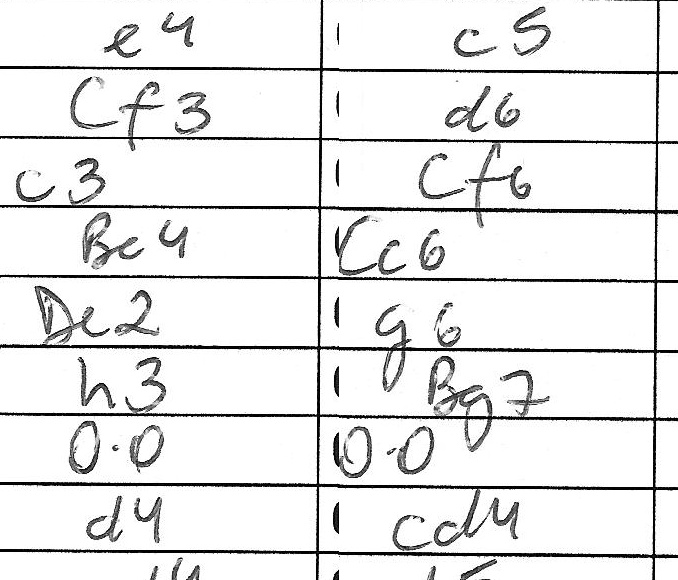 e4 c5
Cf3 d6
c3 Cf6
Bc4 Cc6
De2 g6
h3 Bg7
0.0 0.0
d4 cd4